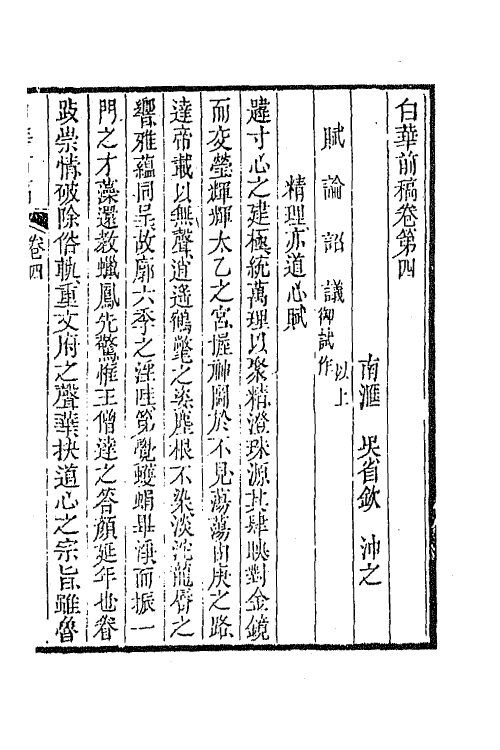 白華前稿卷第四
南滙 吳省欽 沖之
賦 論 詔 議 以上御試作
精理亦道心賦
緯寸心之建極統萬理以聚精澄珠源其肆映對金鏡
而交瑩輝輝太乙之宮握神闕於不見蕩蕩由庚之路
達帝載以無聲逍遙鶴氅之姿塵根不染淡沱龍脣之
響雅蘊同呈故廓六季之淫哇第覺蠖蜎畢淨而振一
門之才藻還教蠟鳳先驚惟王僧達之答顏延年也眷
跂崇情破除俗軌重文府之聲華抉道心之宗旨雖魯
卷四